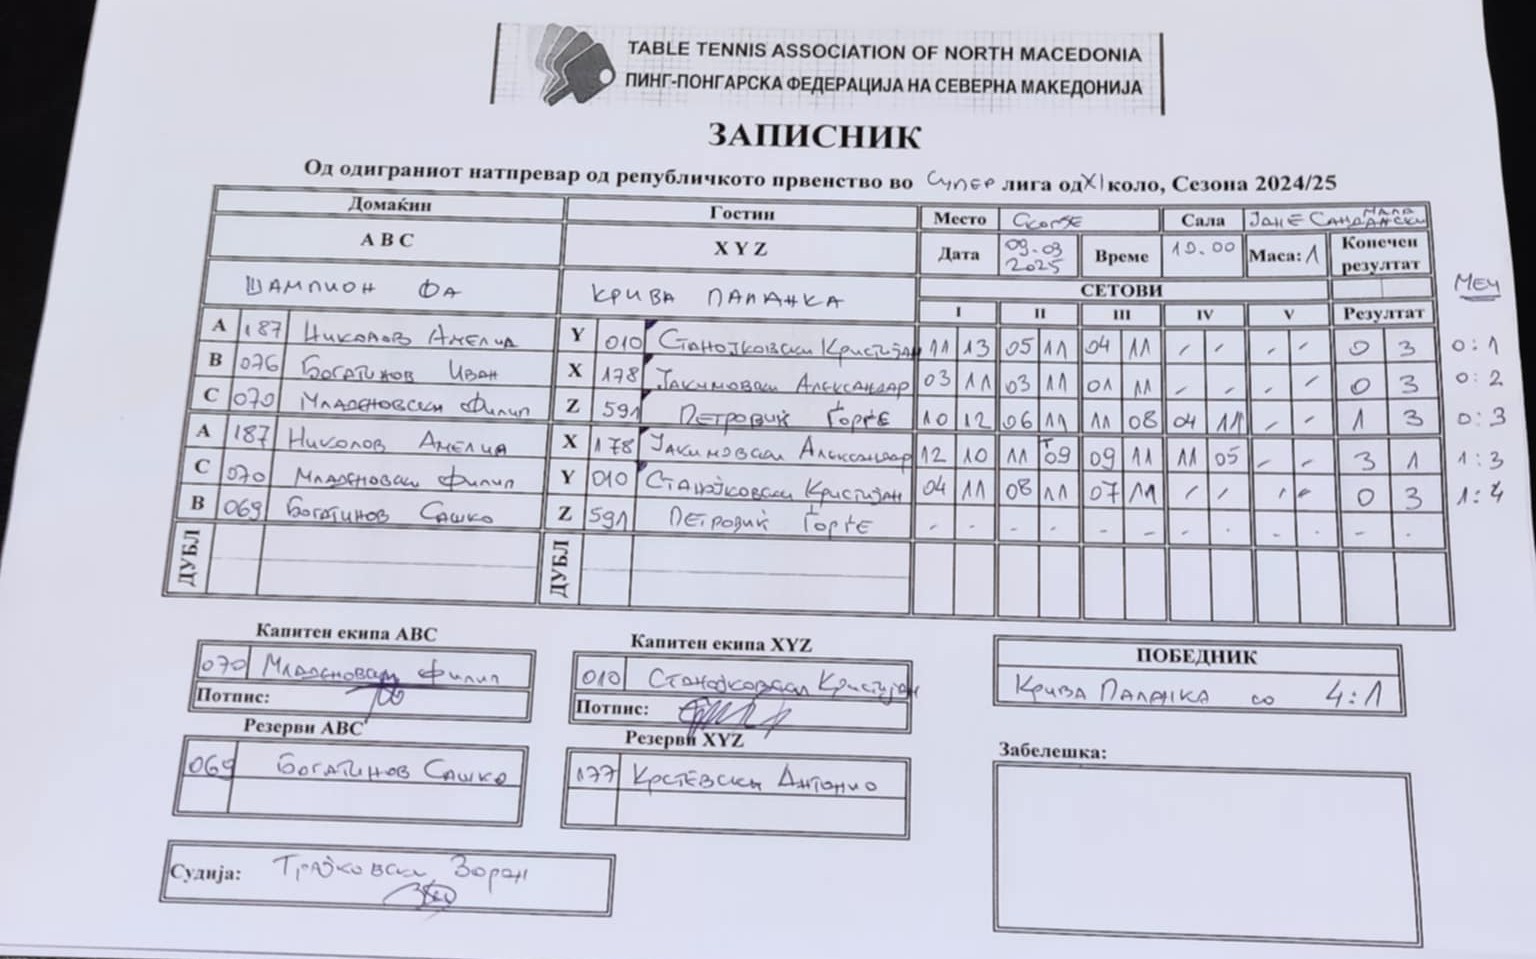 TABLE TENNIS ASSOCIATION OF NORTH MACEDONIA
ПИНГ-ПОНГАРСКА ФЕДЕРАЦИЈА НА СЕВЕРНА МАКЕДОНИЈА
ЗАПИСНИК
Од одиграниот натпревар од републичкото првенство во СУПЕР лига од XI коло, Сезона 2024/25
Домаќин Гостин Место СКОПЈЕ Сала ЈАНЕ САНДАНСКИ МАЛА
A B C X Y Z Дата 09.03 2025 Време 19.00 Маса: 1 Конечен резултат
ШАМПИОН ФА КРИВА ПАЛАНКА СЕТОВИ МЕЧ
I II III IV V Резултат
A 187 НИКОЛОВ АМЕЛИА Y 010 СТАНОЈКОВСКИ КРИСТИЈАН 11 13 05 11 04 11 / / / / 0 3 0:1
B 076 БОГАТИНОВ ИВАН X 178 ЈАКИМОВСКИ АЛЕКСАНДАР 03 11 03 11 01 11 / / / / 0 3 0:2
C 070 МЛАДЕНОВСКИ ФИЛИП Z 591 ПЕТРОВИЌ ЃОРЃЕ 10 12 06 11 11 08 04 11 / / 1 3 0:3
A 187 НИКОЛОВ АМЕЛИА X 178 ЈАКИМОВСКИ АЛЕКСАНДАР 12 10 11 T 09 09 11 11 05 / / 3 1 1:3
C 070 МЛАДЕНОВСКИ ФИЛИП Y 010 СТАНОЈКОВСКИ КРИСТИЈАН 04 11 08 11 07 11 / / / / 0 3 1:4
B 069 БОГАТИНОВ САШКО Z 591 ПЕТРОВИЌ ЃОРЃЕ - - - - - - - - - - - -
ДУБЛ ДУБЛ
Капитен екипа ABC Капитен екипа XYZ ПОБЕДНИК
070 МЛАДЕНОВСКИ ФИЛИП 010 СТАНОЈКОВСКИ КРИСТИЈАН КРИВА ПАЛАНКА СО 4:1
Потпис: Потпис:
Резерви ABC Резерви XYZ Забелешка:
069 БОГАТИНОВ САШКО 177 КРСТЕВСКИ АНТОНИО
Судија: ТРАЈКОВСКИ ЗОРАН